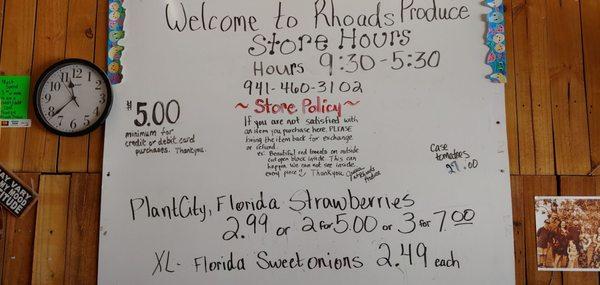 Welcome to Rhoads Produce
Store Hours
Hours 9:30-5:30
941-460-3102
~Store Policy~
$5.00
minimum for
credit or debit card
purchases. Thank you.
If you are not satisfied with
an item you purchase here, PLEASE
bring the item back for exchange
or refund.
ex: Beautiful red tomato on outside
cut open black inside. This can
happen. We can not see inside
every piece Thank you.
Rhoads
Produce
case
tomatoes
27.00
Plant City, Florida Strawberries
2.99 or 2 for 5.00 or 3 for 7.00
XL- Florida Sweet onions 2.49 each